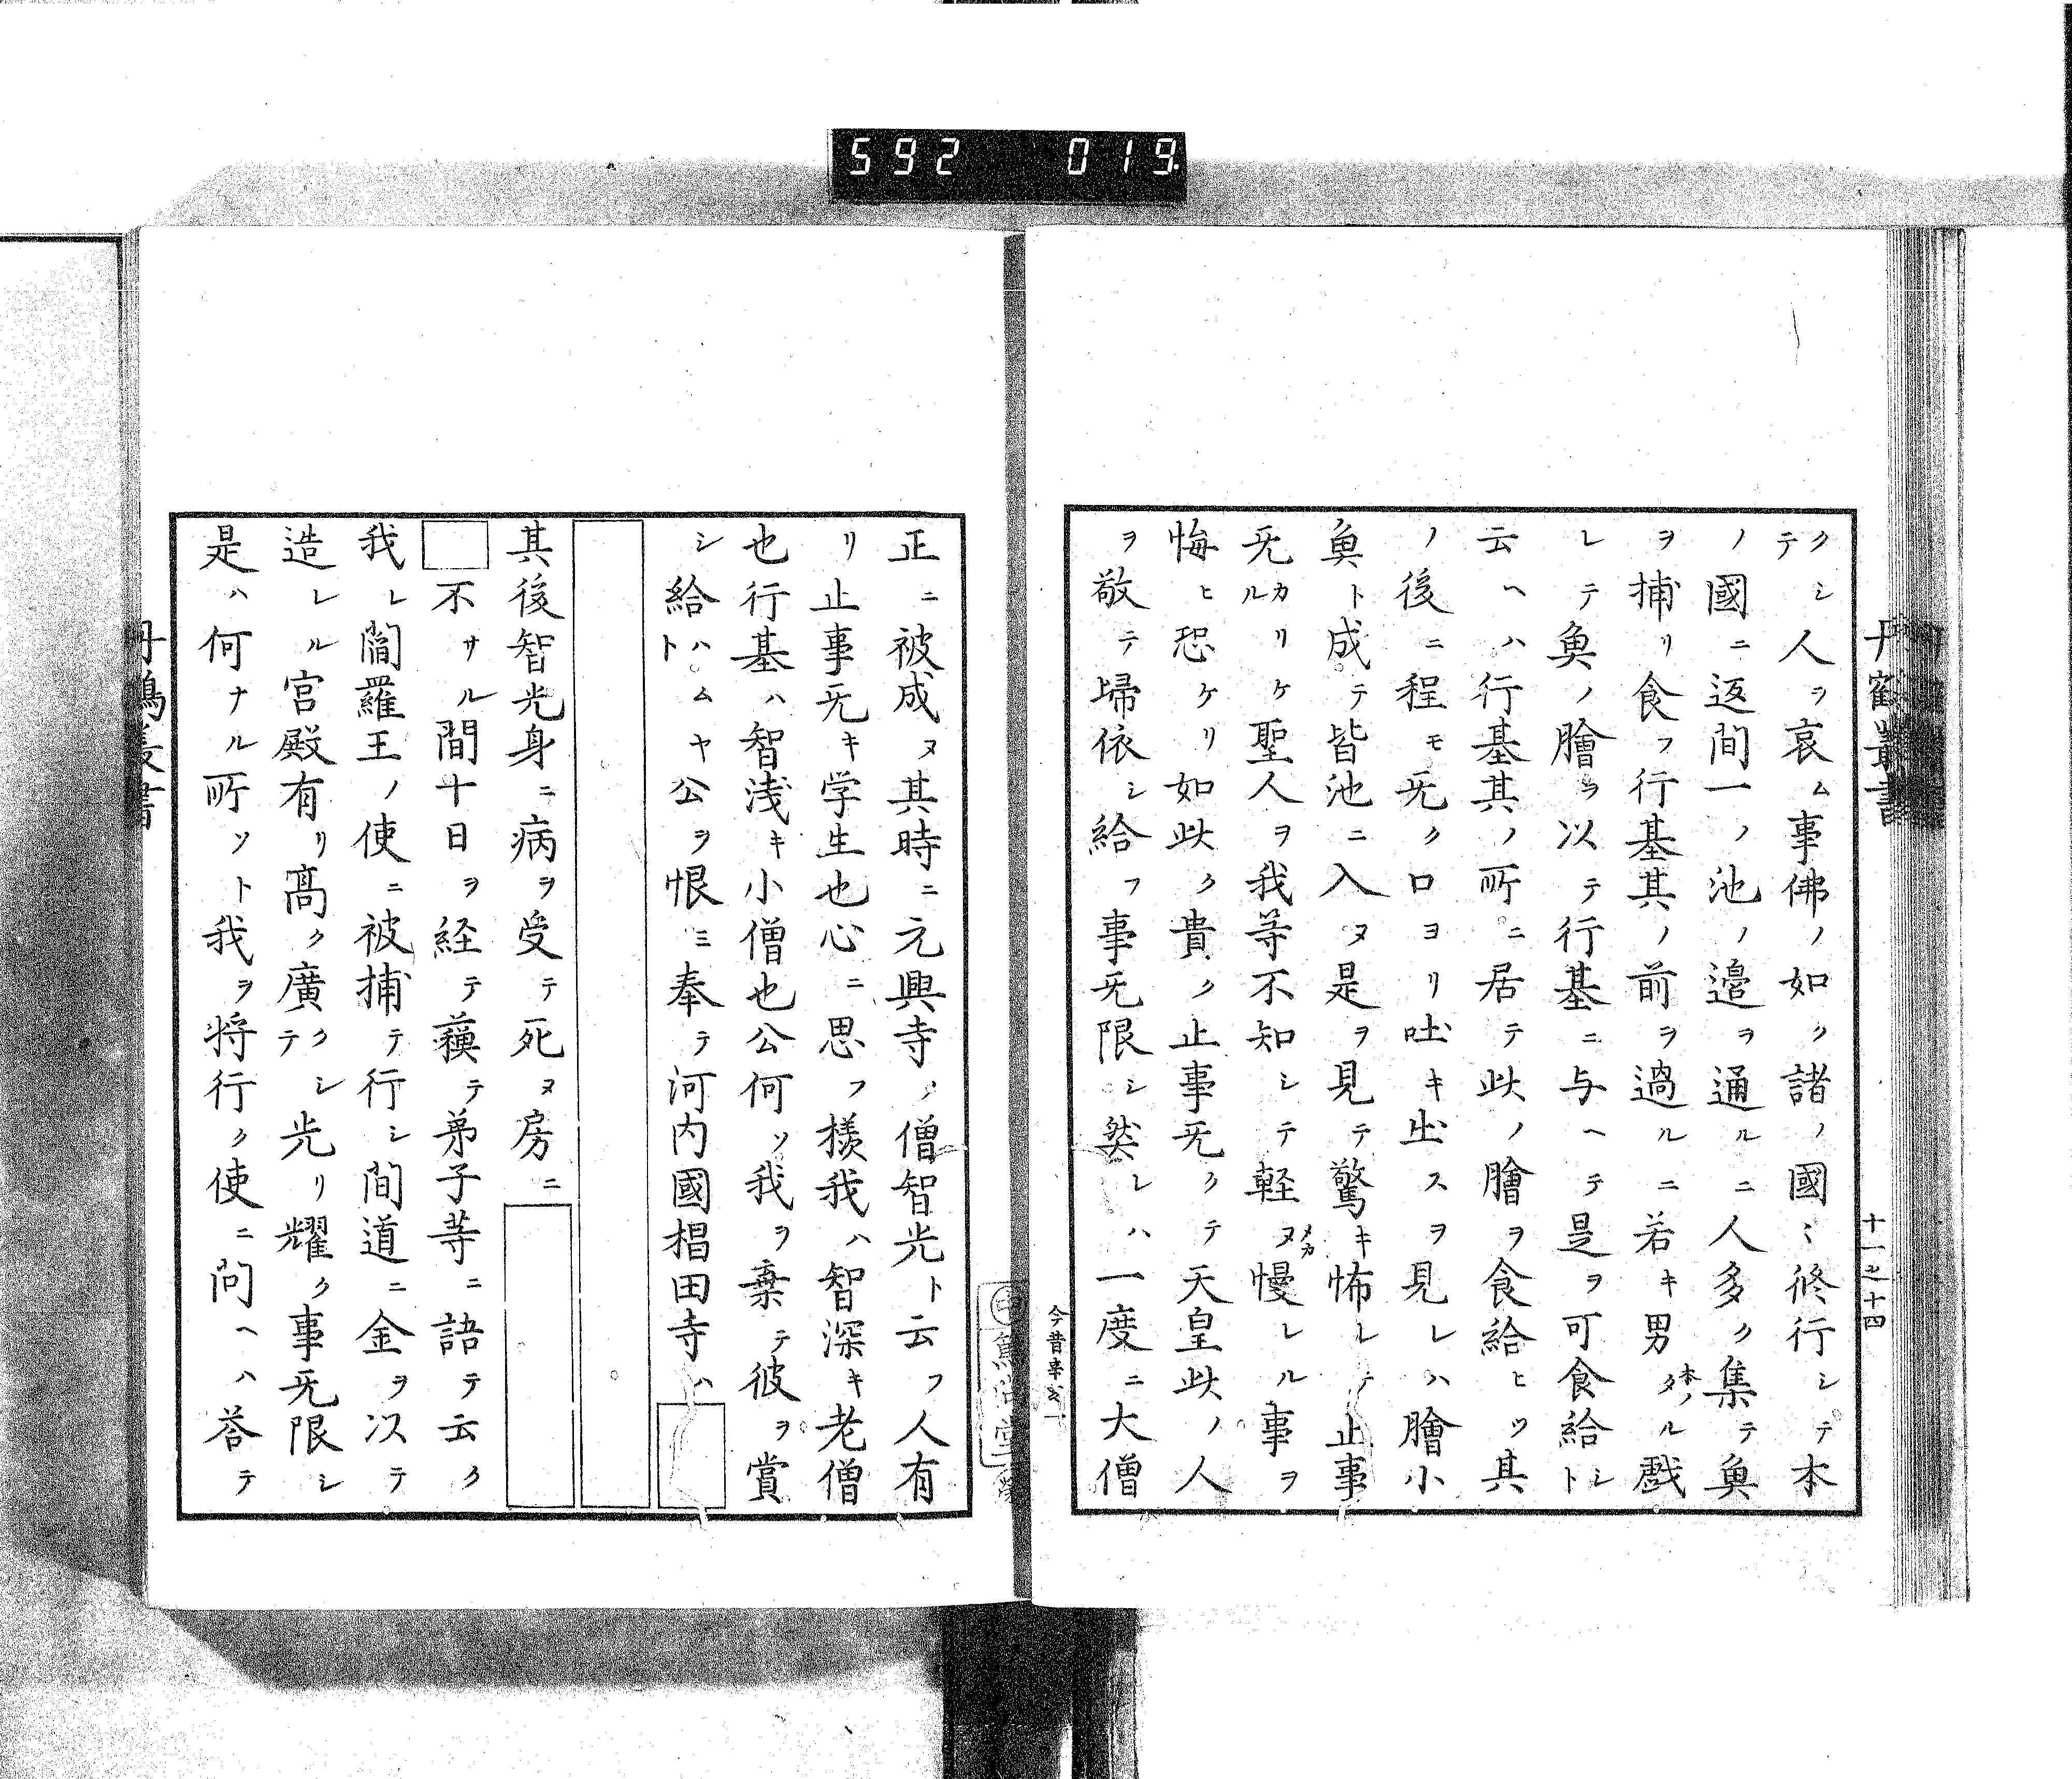 592 019.
丹鶴叢書
十一之十四
クシテ人ヲ哀ム事佛ノ如ク諸ノ國〻修行シテ本
ノ國ニ返間一ノ池ノ邊ヲ通ルニ人多ク集テ魚
ヲ捕リ食フ行基其ノ前ヲ過ルニ若キ男本ノタル戲
レテ魚ノ膾ヲ以テ行基ニ与ヘテ是ヲ可食給シト
云ヘハ行基其ノ所ニ居テ此ノ膾ヲ食給ヒツ其
ノ後ニ程モ旡ク口ヨリ吐キ出スヲ見レハ膾小
魚ト成テ皆池ニ入ヌ是ヲ見テ驚キ怖レテ止事
旡カリケル聖人ヲ我等不知シテ軽メカヌ慢レル事ヲ
悔ヒ恐ケリ如此ク貴ク止事旡クテ天皇此ノ人
ヲ敬テ歸依シ給フ事旡限シ然レハ一度ニ大僧
今昔
正ニ被成ヌ其時ニ元興寺ノ僧智光ト云フ人有
リ止事旡キ学生也心ニ思フ様我ハ智深キ老僧
也行基ハ智浅キ小僧也公何ソ我ヲ棄テ彼ヲ賞
シ給ハムヤト公ヲ恨ミ奉テ河内國椙田寺ハ
其後智光身ニ病ヲ受テ死ヌ房ニ
不サル間十日ヲ経テ蘓テ弟子等ニ語テ云ク
我レ閻羅王ノ使ニ被捕テ行シ間道ニ金ヲ以テ
造レル宮殿有リ髙ク廣クシテ光リ耀ク事旡限シ
是ハ何ナル所ソト我ヲ将行ク使ニ問ヘハ答テ